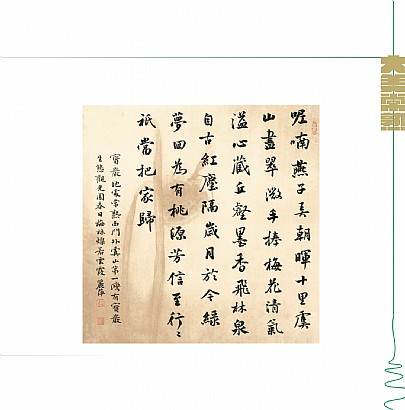 喔喃燕子美朝暉十里虞
山畫翠微手捧梅花清氣
溢心藏丘壑墨香飛林泉
自古紅塵隔歲月於今綠
夢回為有桃源芳信至行〻
祇當把家歸
寶嚴地家常熟西門外虞山第一灣有寶嚴
生態觀光園春日梅林燦若雲霞